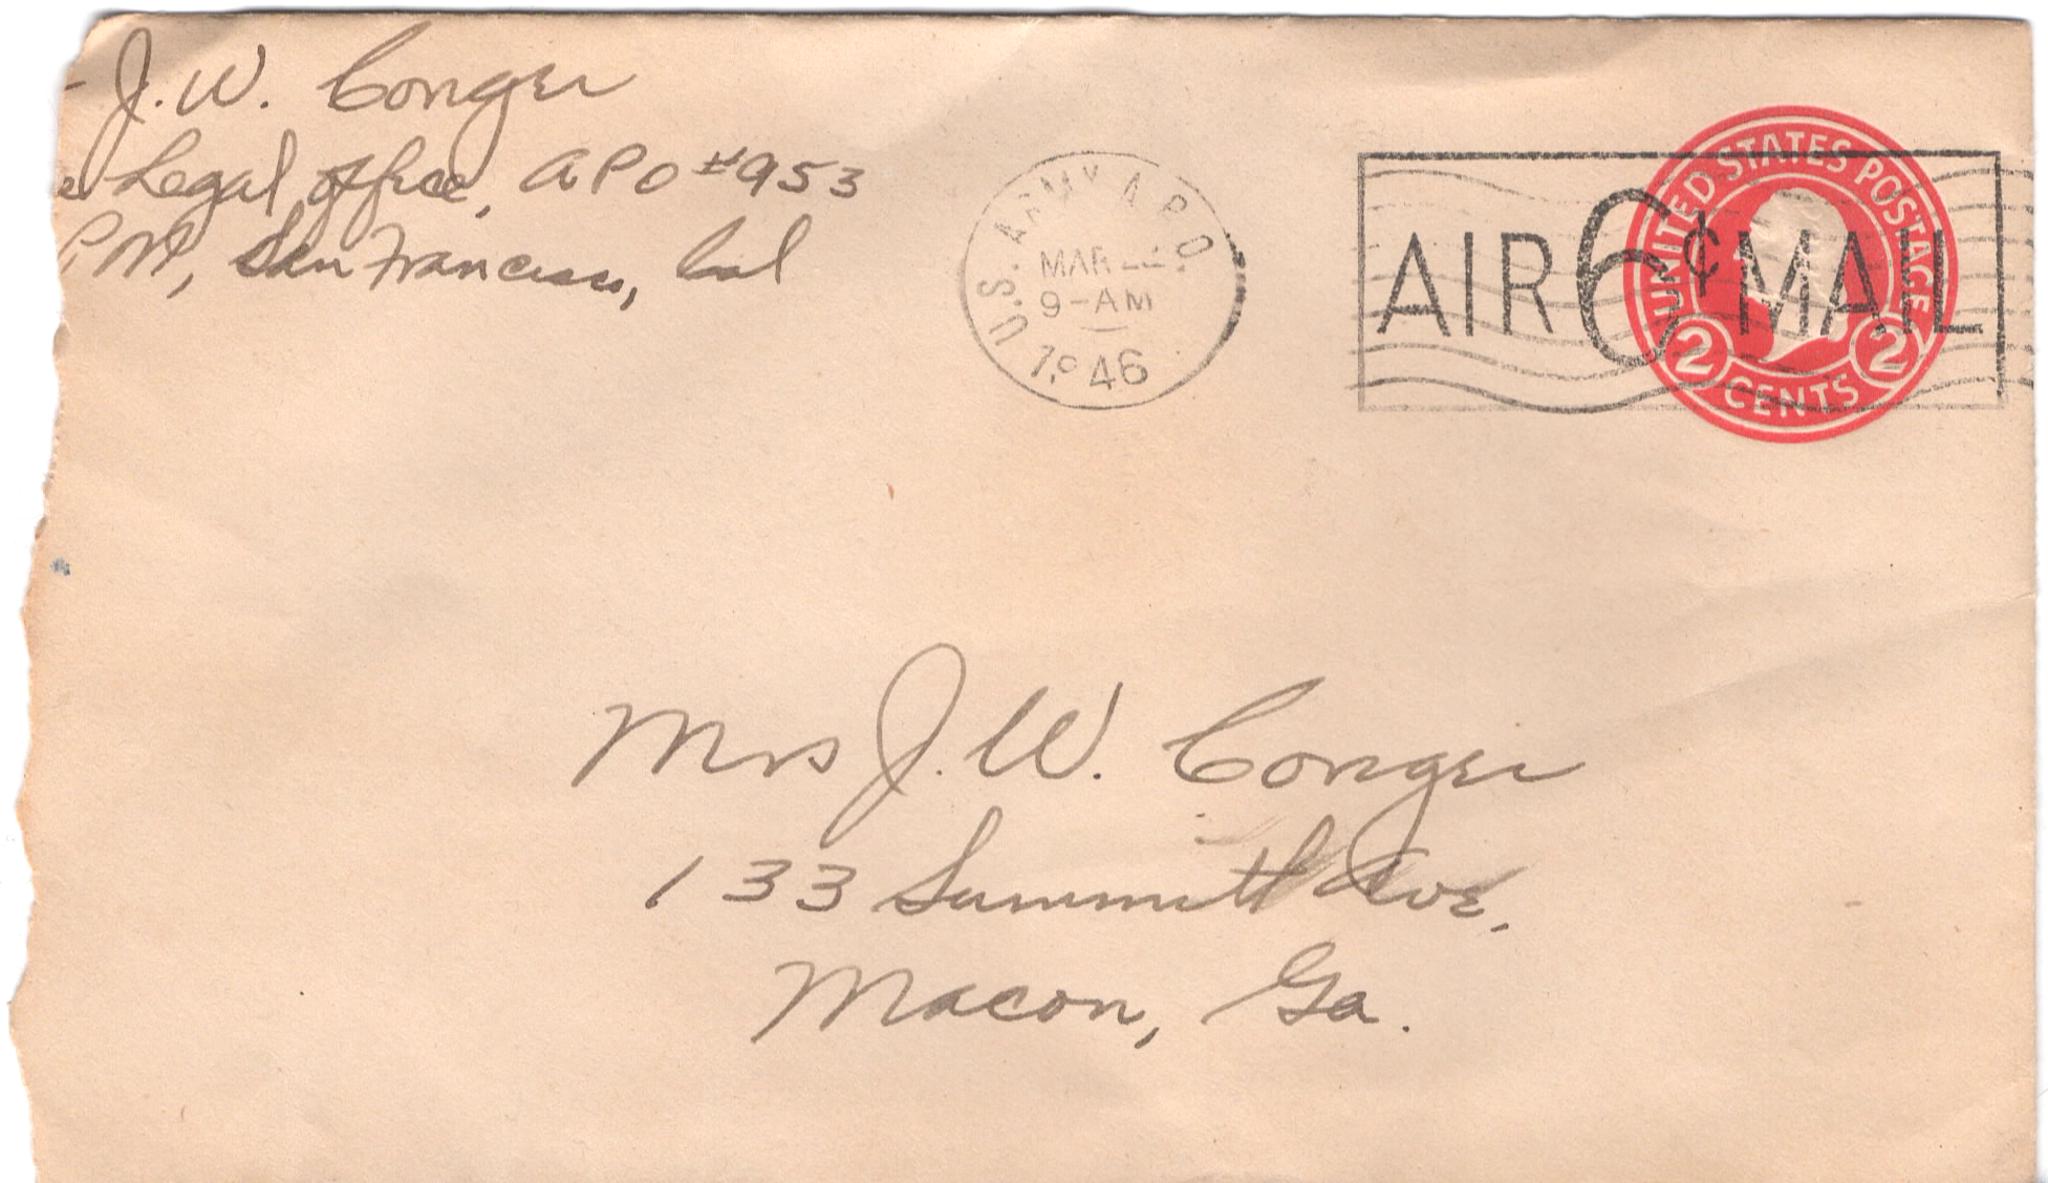 J. W. Conger
e Legal office, APO #953
PM, San Francisco, Cal
U.S. ARMY A.P.O.
MAR
9-AM
1946
AIR 6¢ MAIL
UNITED STATES POSTAGE
2 CENTS 2
Mrs J. W. Conger
133 Summitt Ave.
Macon, Ga.